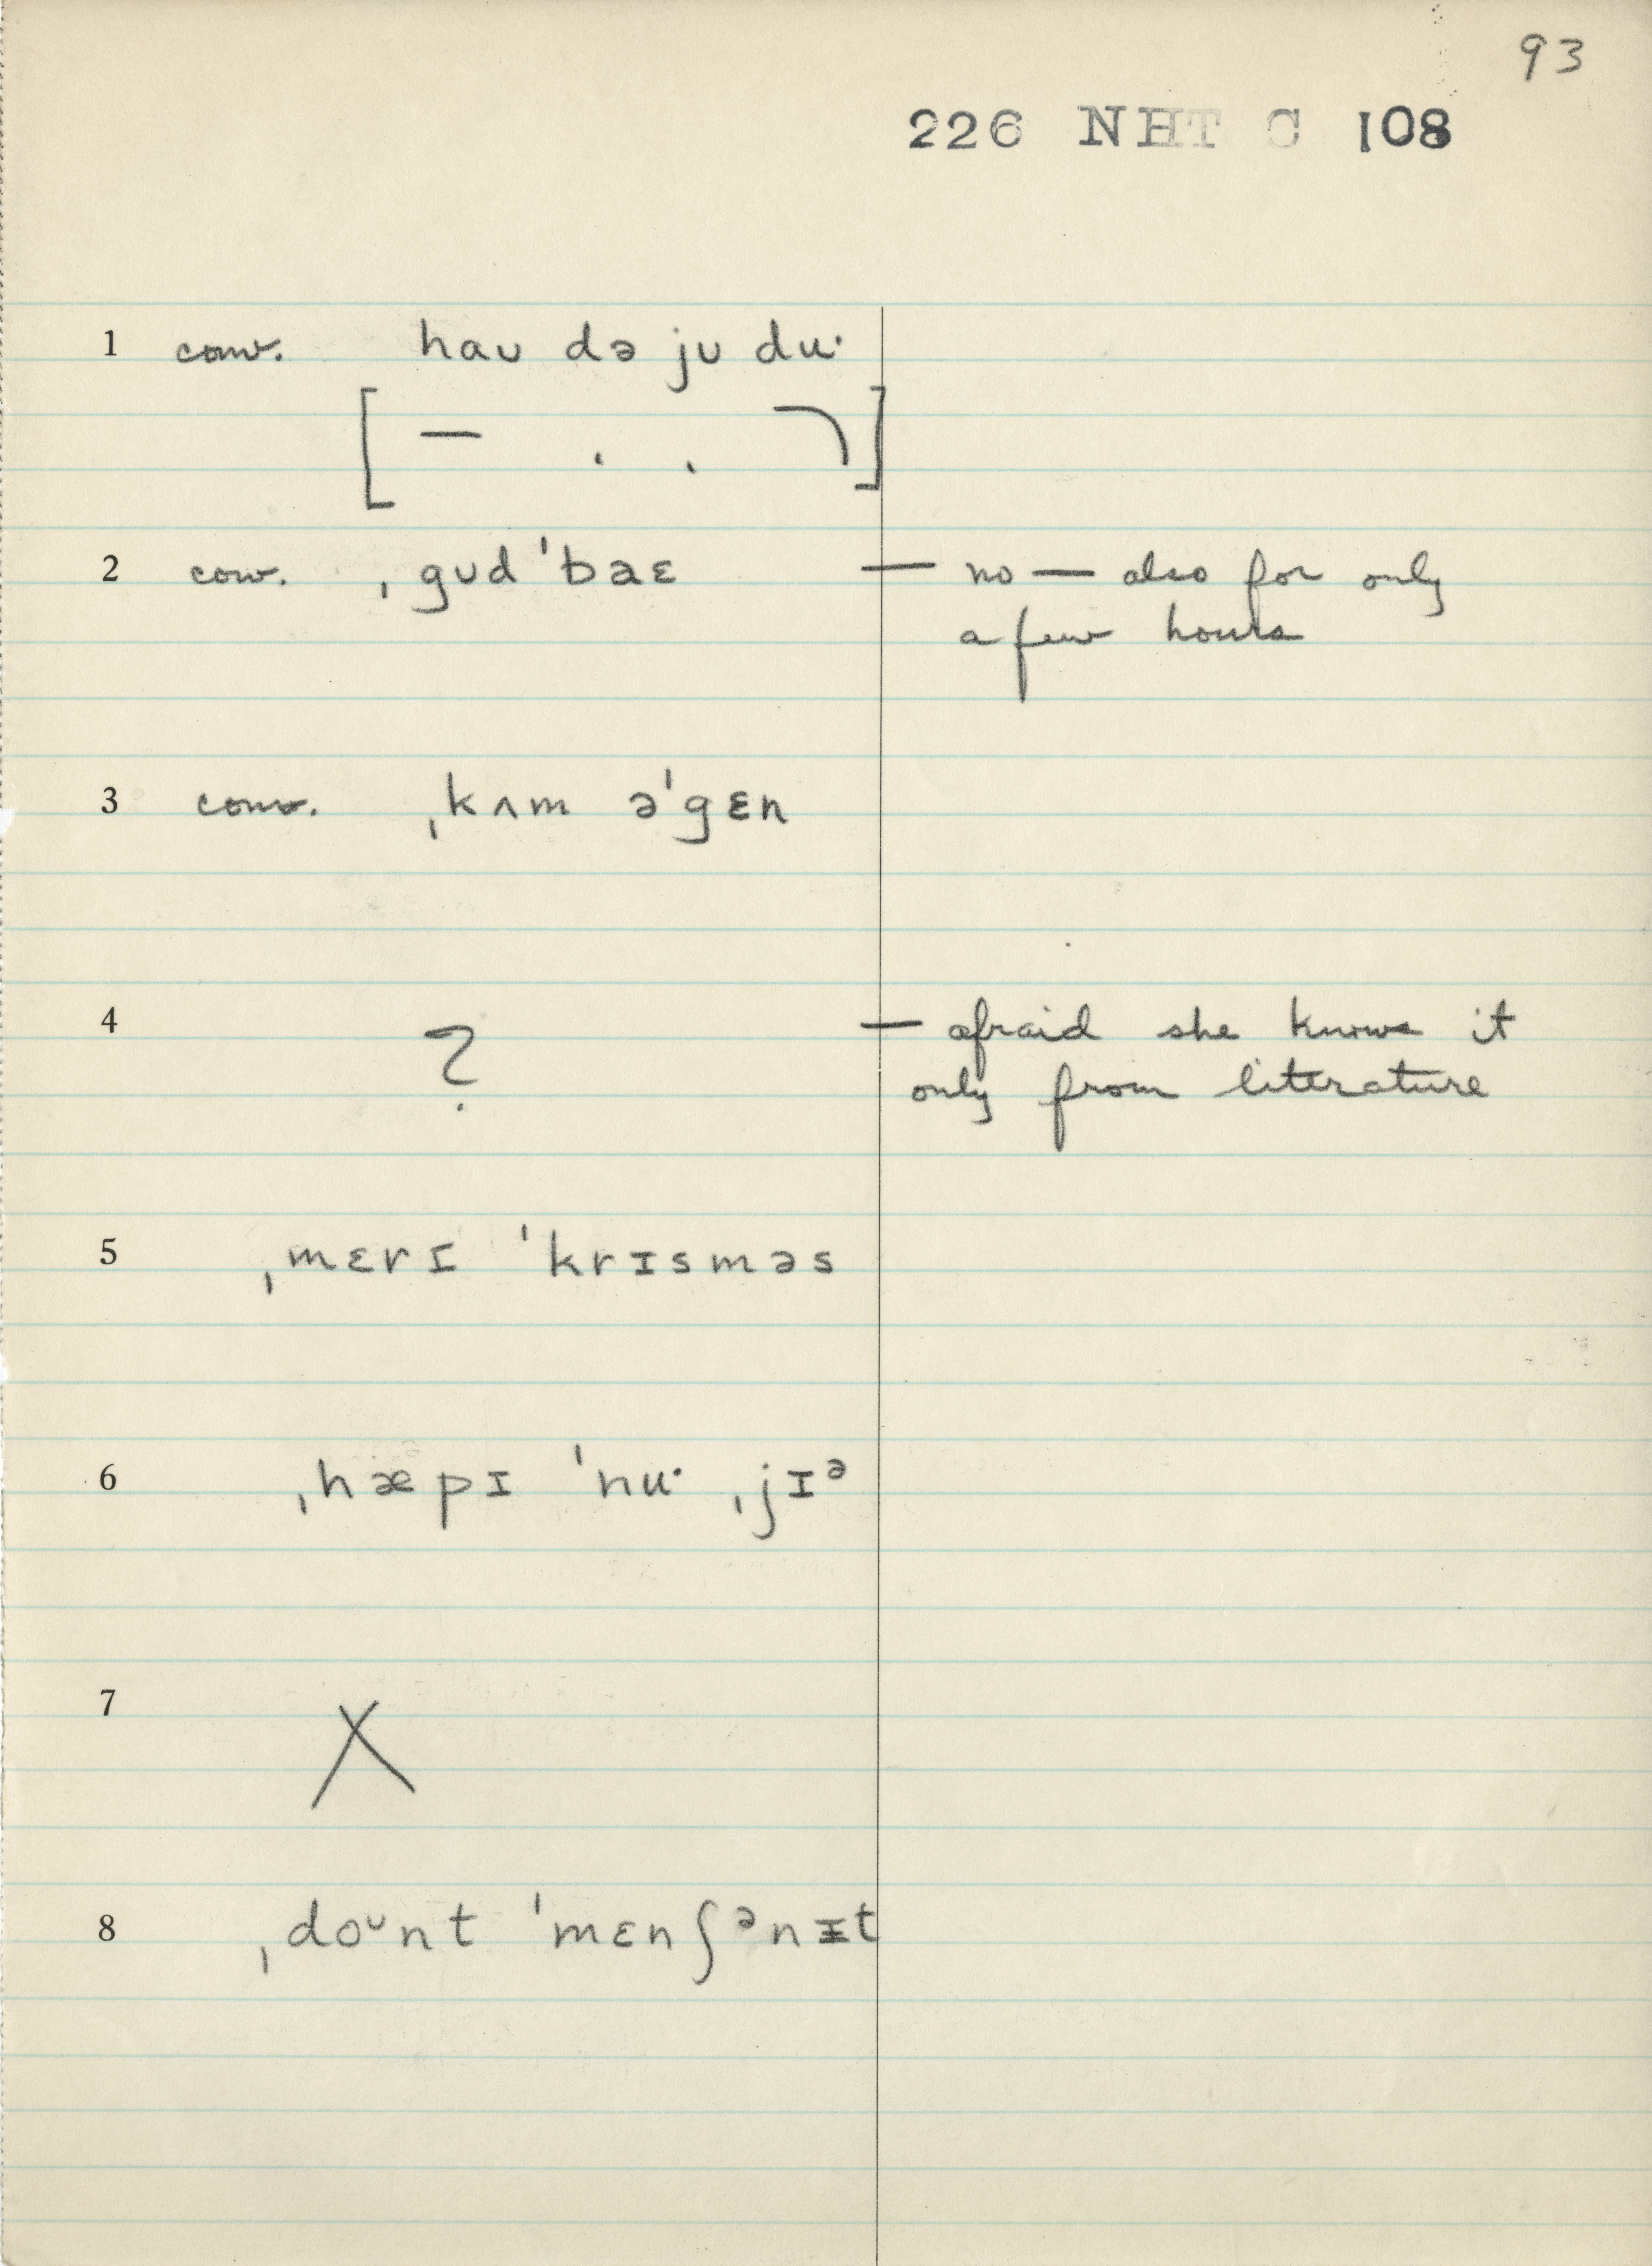 93
226 NHT C 108
1 conv. haʊ də jʊ du·
[ — . . ⌝ ]
2 conv. ˌgʊd ˈbaɛ — no — also for only
a few hours
3 conv. ˌkʌm əˈgɛn
4 ? — afraid she knows it
only from literature
5 ˌmɛrɪ ˈkrɪsməs
6 ˌhæpɪ ˈnu· ˌjɪᵊ
7 X
8 ˌdoᶷnt ˈmɛnʃᵊnɪt